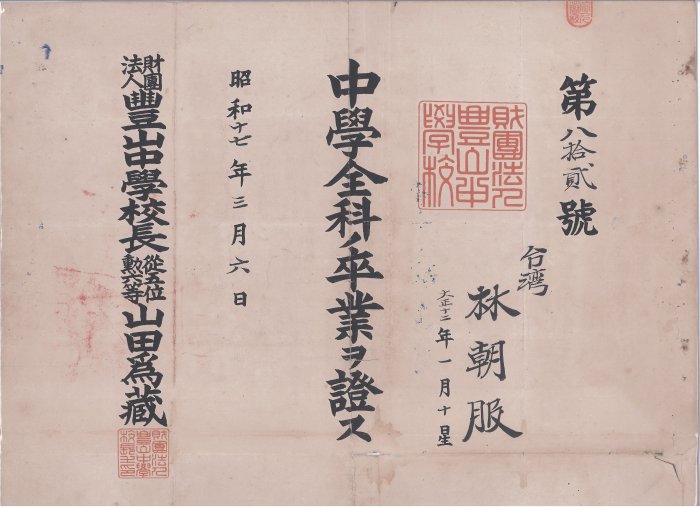 第八拾貳號
台湾
林朝服
大正十二年一月十日星
財團法人豊山中學校
中學全科ノ卒業ヲ證ス
昭和十七年三月六日
財團法人豐山中學校長從五位勲六等山田爲藏